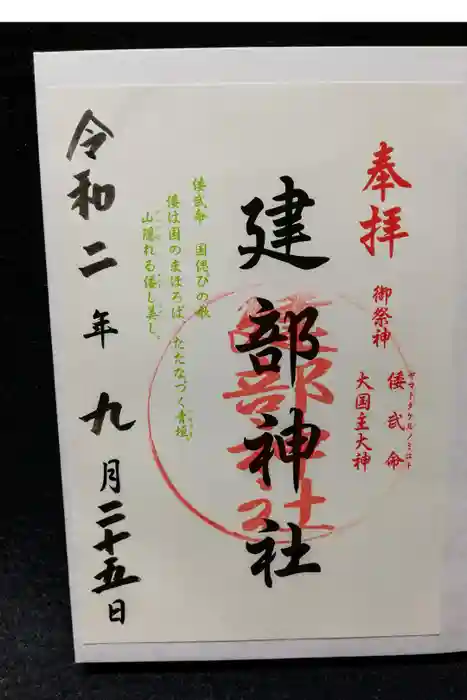 奉拝
御祭神
倭武命
ヤマトタケルノミコト
大国主大神
建部神社
建部神社
倭武命 国偲びの歌
倭は国のまほろば たたなづく青垣
山隠れる倭し美し。
令和二年九月二十五日